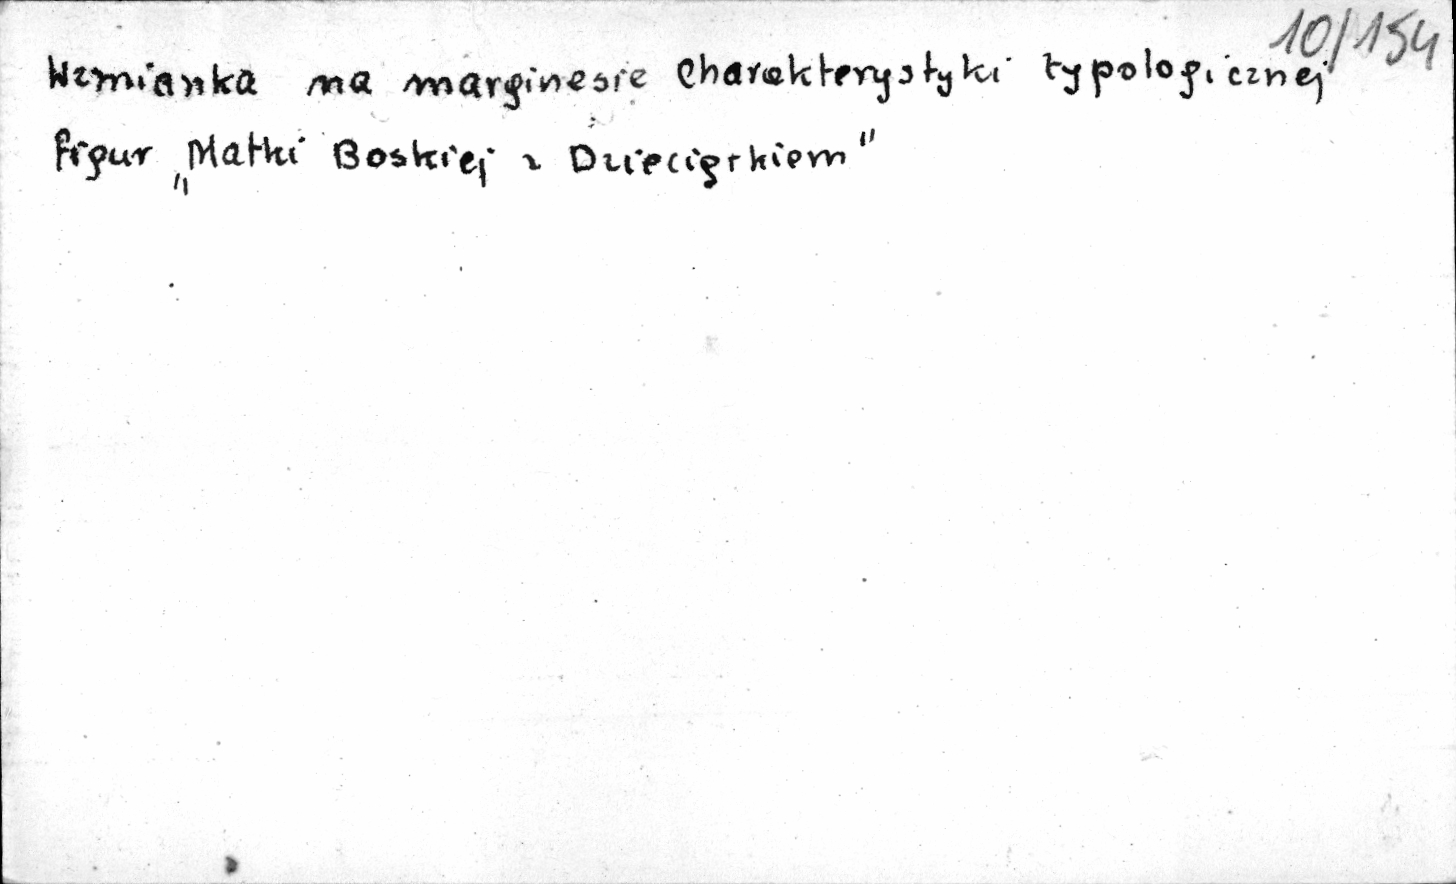 10/154
Wzmianka na marginesie charakterystyki typologicznej
figur „Matki Boskiej z Dzieciątkiem"